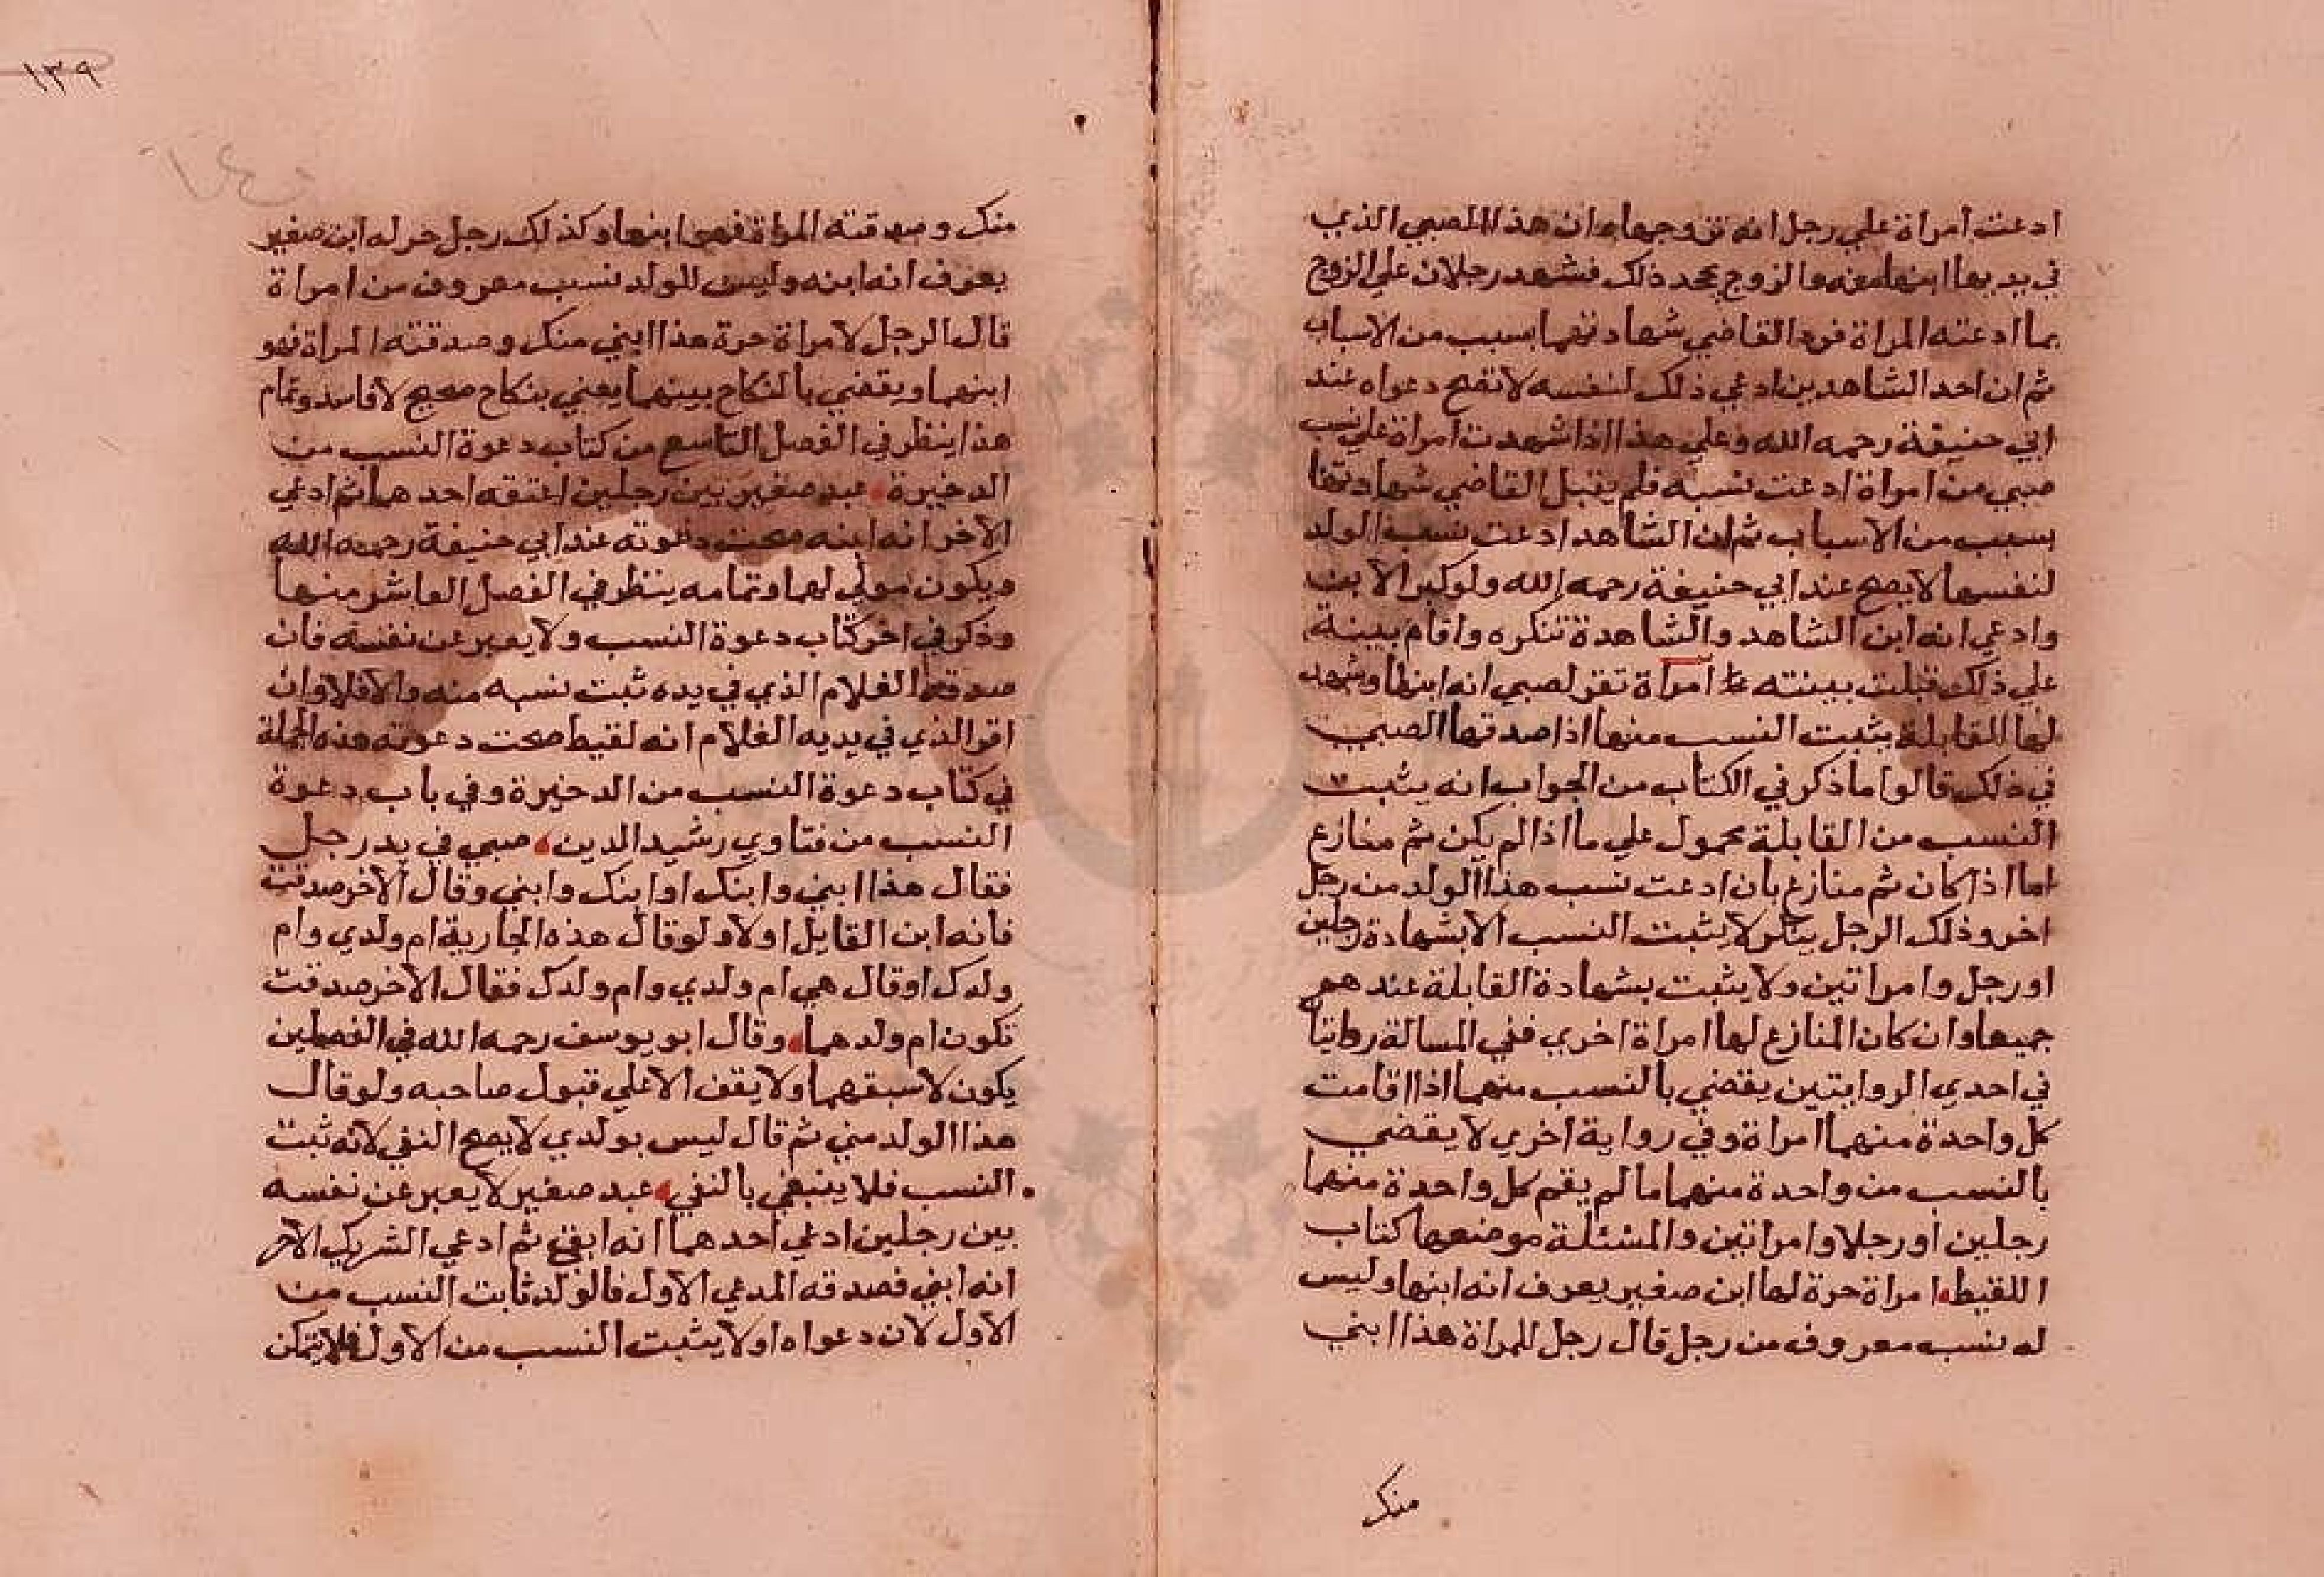 ادعت امراة علي رجل انه تزوجها وان هذا الصبي الذي
في يديها ابنها منه والزوج يجحد ذلك فشهد رجلان علي الزوج
بما ادعته المراة فرد القاضي شهادتهما بسبب من الاسباب
ثم ان احد الشاهدين ادعي ذلك لنفسه لا تصح دعواه عند
ابي حنيفة رحمه الله وعلي هذا اذا شهدت امراة علي نسب
صبي من امراة ادعت نسبه فلم يقبل القاضي شهادتها
بسبب من الاسباب ثم ان الشاهد ادعت نسب الولد
لنفسها لا يصح عند ابي حنيفة رحمه الله ولو كبر الابن
وادعي انه ابن الشاهد والشاهدة تنكره واقام بينة
علي ذلك قبلت بينته امراة تقر لصبي انه ابنها وشهد
لها القابلة يثبت النسب منها اذا صدقها الصبي
في ذلك قالوا ما ذكر في الكتاب من الجواب انه يثبت
النسب من القابلة محمول علي ما اذا لم يكن ثم منازع
اما اذا كان ثم منازع بان ادعت نسب هذا الولد من رجل
اخر وذلك الرجل ينكر لا يثبت النسب الا بشهادة رجلين
او رجل وامراتين ولا يثبت بشهادة القابلة عند هم
جميعا وان كان المنازع لها امراة اخري ففي المسالة روايتا
في احدي الروايتين يقضي بالنسب منهما اذا اقامت
كل واحدة منهما امراة وفي رواية اخري لا يقضي
بالنسب من واحدة منهما ما لم يقم كل واحدة منهما
رجلين او رجلا وامراتين والمسئلة موضعها كتاب
اللقيط امراة حرة لها ابن صغير يعرف انه ابنها وليس
له نسب معروف من رجل قال رجل للمراة هذا ابني
منك
١٣٩
منك وصدقته المراة فهو ابنها وكذلك رجل حر له ابن صغير
يعرف انه ابنه وليس للولد نسب معروف من امراة
قال الرجل لامراة حرة هذا ابني منك وصدقته المراة فهو
ابنهما ويقضي بالنكاح بينهما يعني بنكاح صحيح لا فاسد وتمام
هذا ينظر في الفصل التاسع من كتاب دعوة النسب من
الدخيرة عبد صغير بين رجلين اعتقه احدهما ثم ادعي
الآخر انه ابنه صحت دعوته عند ابي حنيفة رحمه الله
ويكون مولي لهما وتمامه ينظر في الفصل العاشر منها
وذكر في اخر كتاب دعوة النسب ولا يعبر عن نفسه فان
صدقه الغلام الذي في يده ثبت نسبه منه والا فلا وان
اقر الذي في يديه الغلام انه لقيط صحت دعوته هذه الجملة
في كتاب دعوة النسب من الدخيرة وفي باب دعوة
النسب من فتاوي رشيد الدين صبي في يد رجل
فقال هذا ابني وابنك او ابنك وابني وقال الآخر صدقت
فانه ابن القايل اولا ولو قال هذه الجارية ام ولدي وام
ولدك او قال هي ام ولدي وام ولدك فقال الآخر صدقت
تكون ام ولدهما وقال ابو يوسف رحمه الله في الفصلين
يكون لاسبقهما ولا يقف الا علي قبول صاحبه ولو قال
هذا الولد مني ثم قال ليس بولدي لا يصح النفي لانه ثبت
النسب فلا ينبغي بالنفي عبد صغير لا يعبر عن نفسه
بين رجلين ادعي احدهما انه ابني ثم ادعي الشريك الآخر
انه ابني فصدقه المدعي الاول فالولد ثابت النسب من
الاول لان دعواه او لا يثبت النسب من الاول فلا يتمكن